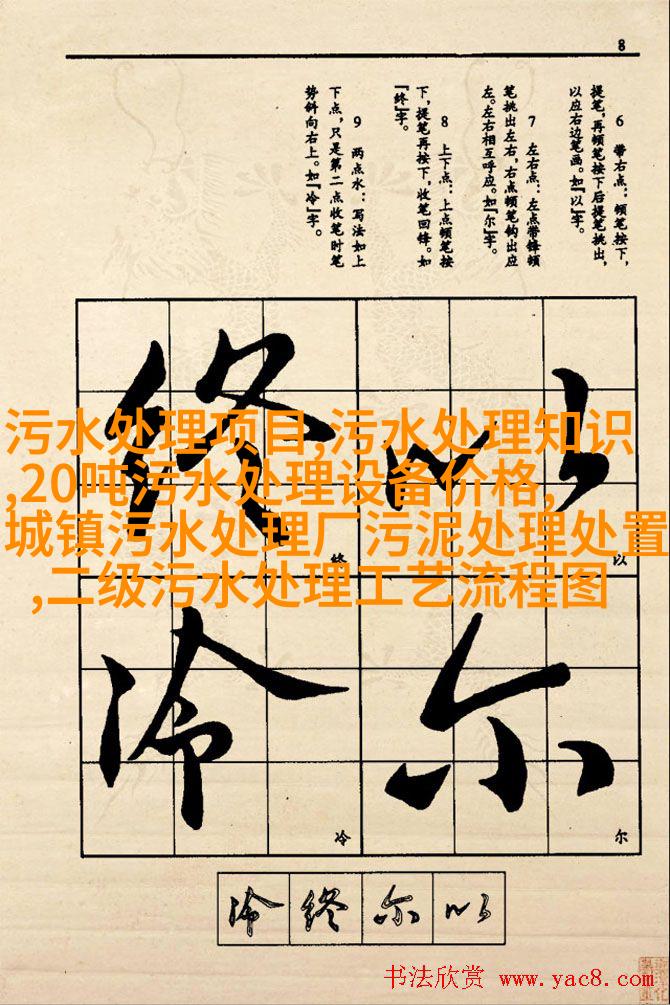 8
6 带右点：顿笔按下，
提笔，再顿笔按下后提笔挑出，
以应右边笔画。如『以』字。
7 左右点：左点带锋顿
笔挑出左右，右点顿笔钩出应
左。左右相互呼应。如『尔』字。
8 上下点：上点顿笔按
下，提笔再按下，收笔回锋。如
『终』字。
9 两点水：写法如上
下点，只是第二点收笔时笔
势斜向右上。如『冷』字。
污水处理项目,污水处理知识
,20吨污水处理设备价格,
城镇污水处理厂污泥处理处置
,二级污水处理工艺流程图
以
终
以
终
尔
冷
尔
冷
以
尔
终
冷
书法欣赏 www.yac8.com